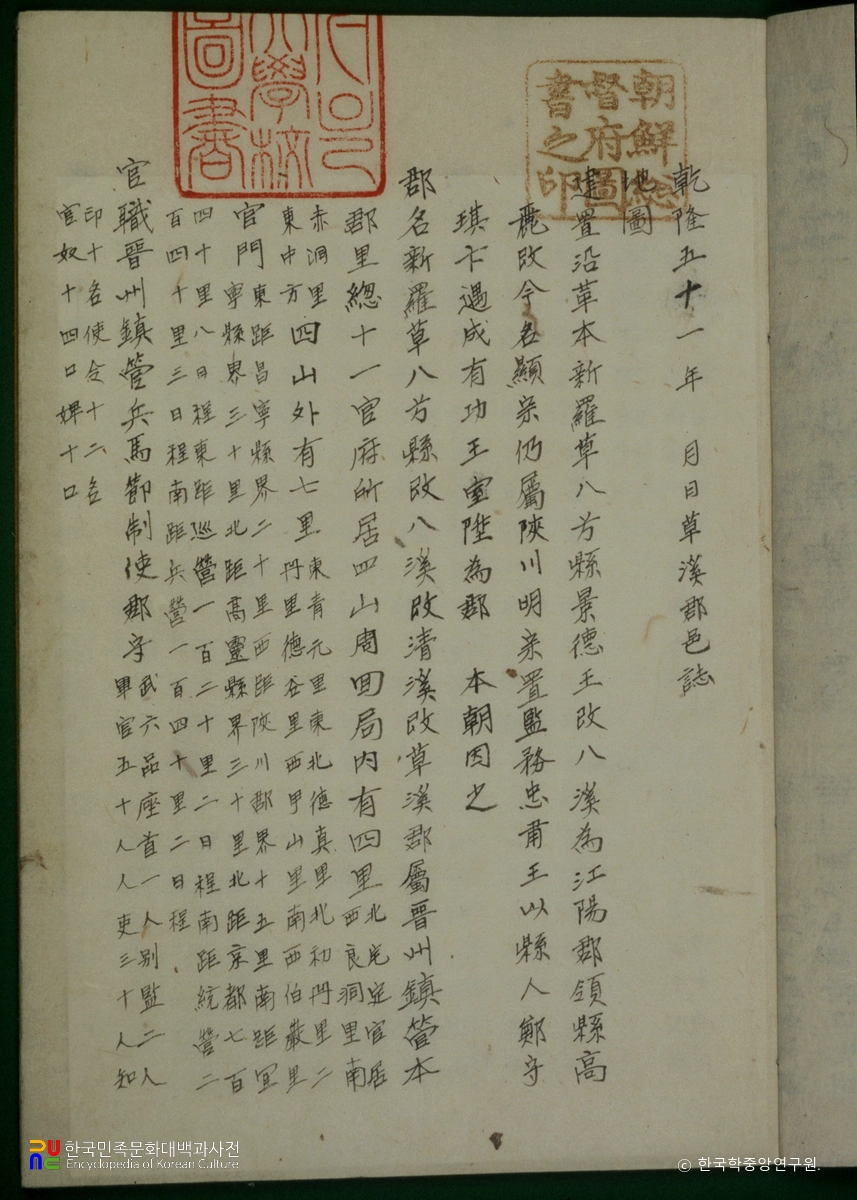 朝鮮總
督府圖
書之印
서울
大學校
圖書
乾隆五十一年 月日草溪郡邑誌
地圖
建置沿革本新羅草八方縣景德王改八溪為江陽郡領縣高
麗改今名顯宗仍屬陜川明宗置監務忠肅王以縣人鄭守
琪卞遇成有功王室陞為郡 本朝因之
郡名新羅草八方縣改八溪改清溪改草溪郡屬晉州鎮管本
郡里總十一官府所居四山周回局内有四里北宅定官居
西良洞里南
赤洞里
東中方四山外有七里東青元里東北德真里北初丹里二
丹里德谷里西甲山里南西伯巖里
官門東距昌寧縣界二十里西距陜川郡界十五里南距宜
寧縣界三十里北距高靈縣界三十里北距京都七百
四十里八日程東距巡營一百二十里二日程南距統營二
百四十里三日程南距兵營一百四十里二日程
官職晉州鎮管兵馬節制使郡守武六品座首一人别監二人
軍官五十人人吏三十人知
印十名使令十二名
官奴十四口婢十口
한국민족문화대백과사전
Encyclopedia of Korean Culture
© 한국학중앙연구원.